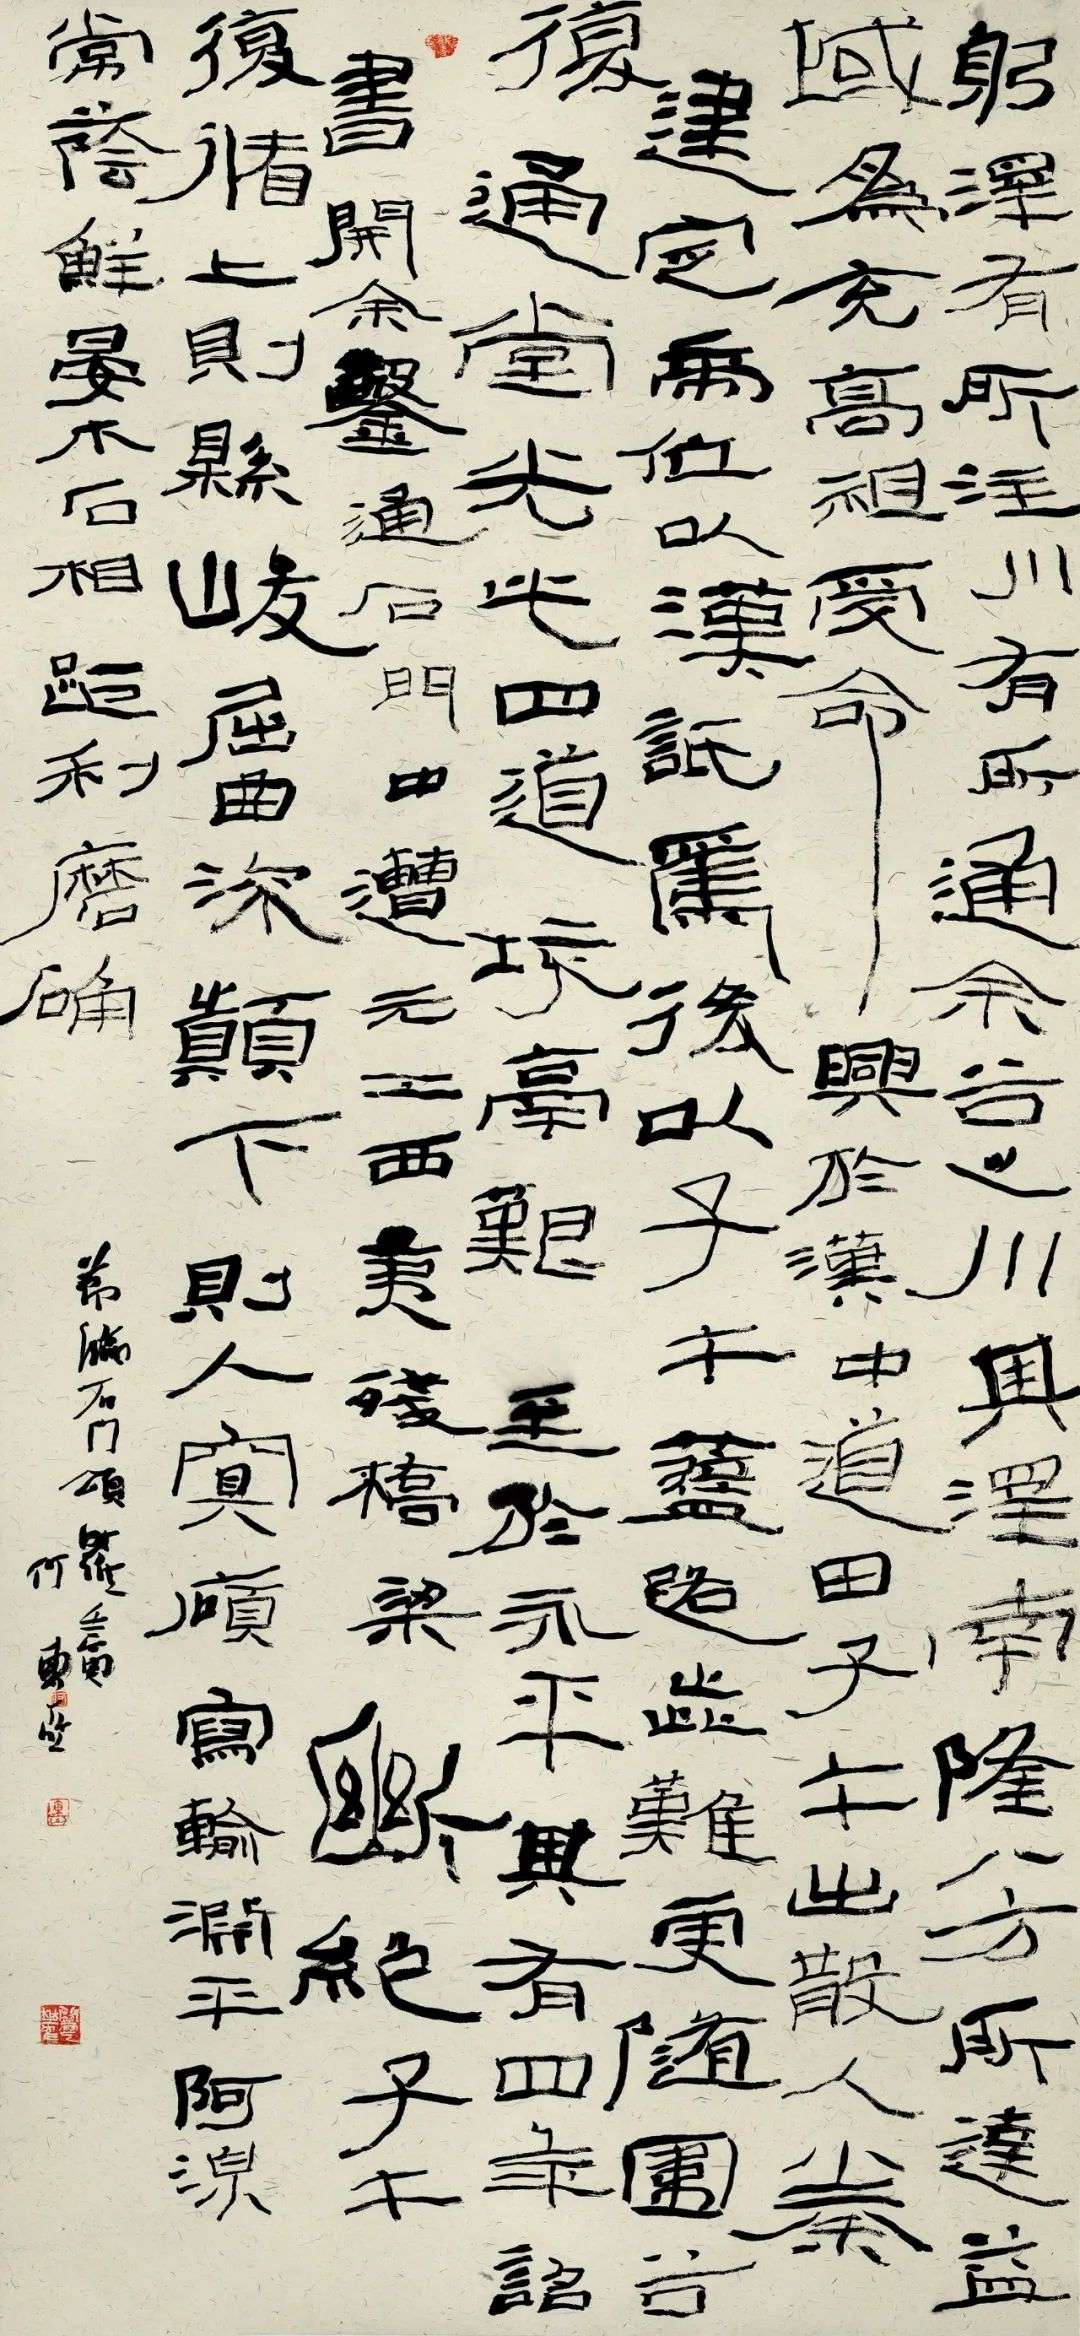 躬澤有所注川有所通余谷之川其澤南隆八方所達益
域爲充高祖受命興於漢中道由子午出散入秦
建定帝位以漢詆焉後以子午蓋路歰難更隨圍谷
復通堂光此四道垓鬲艱至於永平其有四年詔
書開余鑿通石門中遭元二西夷殘橋梁斷絕子午
復循上則縣峻屈曲流顛下則入寞廎寫輸淵平阿涼
常蔭鮮晏木石相距利磨确
節臨石门頌
何東